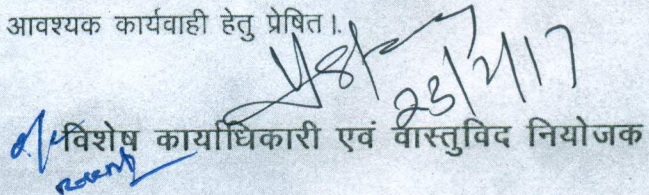 आवश्यक कार्यवाही हेतु प्रेषित।
23/2/17
विशेष कार्याधिकारी एवं वास्तुविद नियोजक